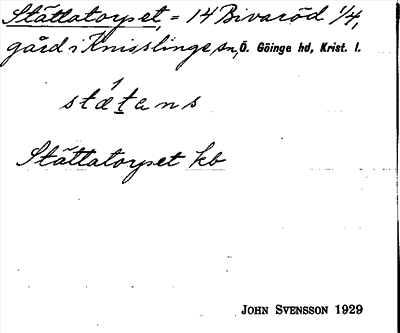 Stättatorpset, = 14 Bivaröd 1/4,
gård i Knisslinge sn, Ö. Göinge hd, Krist. l.
stætans
Stättatorpset kb
JOHN SVENSSON 1929